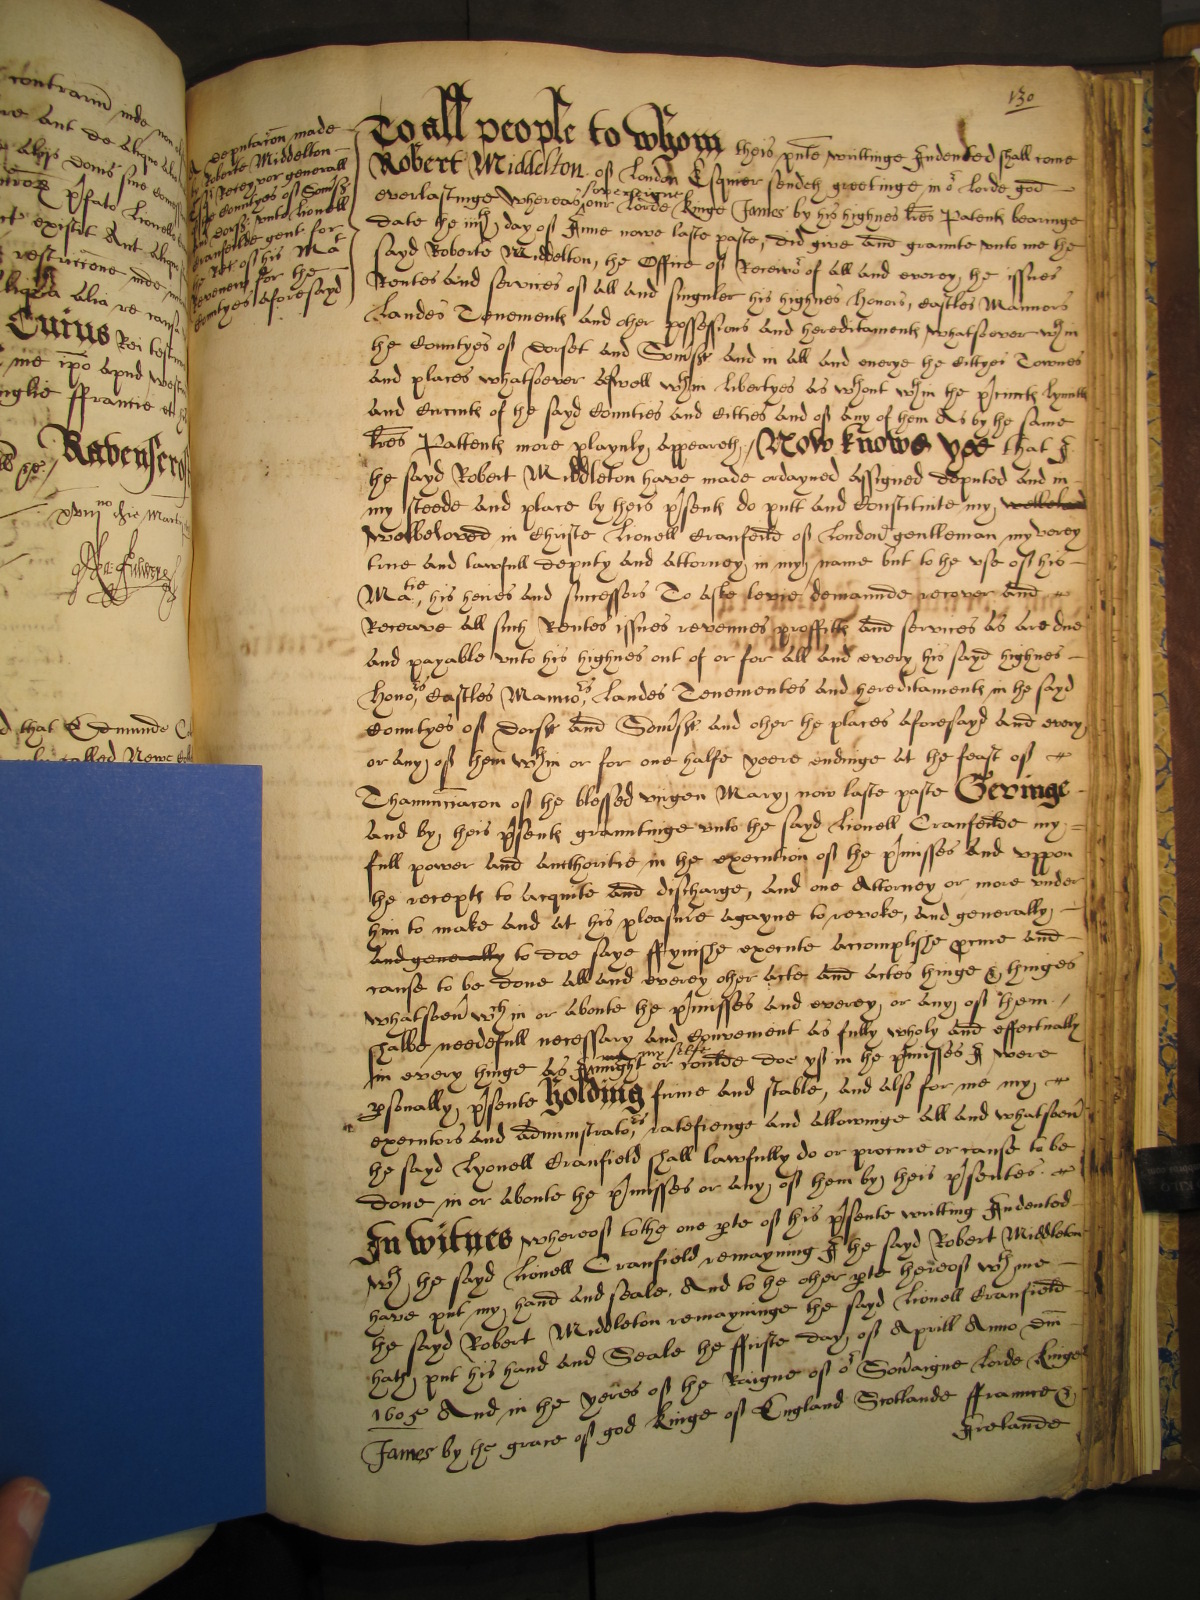 130
deputac̃on made
Roberte Middelton
Esqr Receyvor generall
the Countyes of Somsett
and dorst vnto Lionell
Cranfeilde gent for
the Rec of his Mats
Revenew for the
Countyes aforesayd
To all people to whom theis pnte writtinge Indented shall come
Robert Middelton of London Esquier sendeth greetinge in or Lorde god
everlastinge whereas our sovereigne Lorde Kinge James by his highnes lres Patents bearinge
date the iiijth day of June nowe laste paste, did give and graunte vnto me the
sayd Roberte Middelton, the Office of Receivor of all and everey the issues
Rentes and services of all and singuler his highnes honors, Castles Mannors
Landes Tenements and other possessions and hereditaments whatsoever wthin
the Countyes of Dorset and Somst and in all and everye the Cittyes Townes
and places whatsoever aswell wthin libertyes as wthout wthin the precincts lymitts
and Circuits of the sayd Counties and Citties and of any of them As by the same
lres Pattents more playnly appeareth / Now knowe yee that I
the sayd Robert Middleton have made ordayned assigned deputed and in
my steede and place by theis psents do putt and Constitute my welbelovd
Welbeloved in Christe Lionell Cranfeild of London gentleman my verey
true and lawfull deputy and attorney in my name but to the vse of his
Matie, his heires and successors To aske levie demaunde recover and
Receave all such Rentes issues revenues proffitts and services as are due
and payable vnto his highnes out of or for all and every his sayd highnes
Honors, Castles Mannors, Landes Tenementes and hereditaments in the sayd
Countyes of Dorst and Somst and other the places aforesayd and every
or any of them wthin or for one halfe yeere endinge at the feast of
Thannunciacon of the blessed virgen Mary now laste paste Gevinge
and by theis psents grauntinge vnto the sayd Lionell Cranfeilde my
full power and aucthoritie in the execution of the pmisses and vppon
the recepts to acquite and discharge, and one Attorney or more vnder
him to make and at his pleasure agayne to revoke, and generally
and generally to doe saye ffynishe execute accomplishe pcure and
cause to be done all and everey other acte and actes thinge & thinges
whatsoeur wch in or aboute the pmisses and everey or any of them
shalbe needefull necessary and Convenient as fully wholy and effectually
in every thinge as I might or my selfe coulde doe yf in the pmisses I were
psonally psente Holding firme and stable, and also for me my
executors and administrators, ratefienge and allowinge all and whatsoeur
the sayd Lyonell Cranfield shall lawfully do or procure or cause to be
done in or aboute the pmisses or any of them by theis psentes.
In witnes whereof to the one pte of this psente writting Indented
wth the sayd Lionell Cranfield remayning I the sayd Robert Middleton
have put my hand and seale, And to the other pte hereof wth me
the sayd Robert Middleton remayninge the sayd Lionell Cranfield
hath put his hand and Seale the ffirste day of Aprill Anno dni
1605 And in the yeres of the Raigne of or Soveraigne Lorde Kinge
James by the grace of god Kinge of England Scotlande ffraunce &
Irelande
Cuius Rei
Ravenscrof